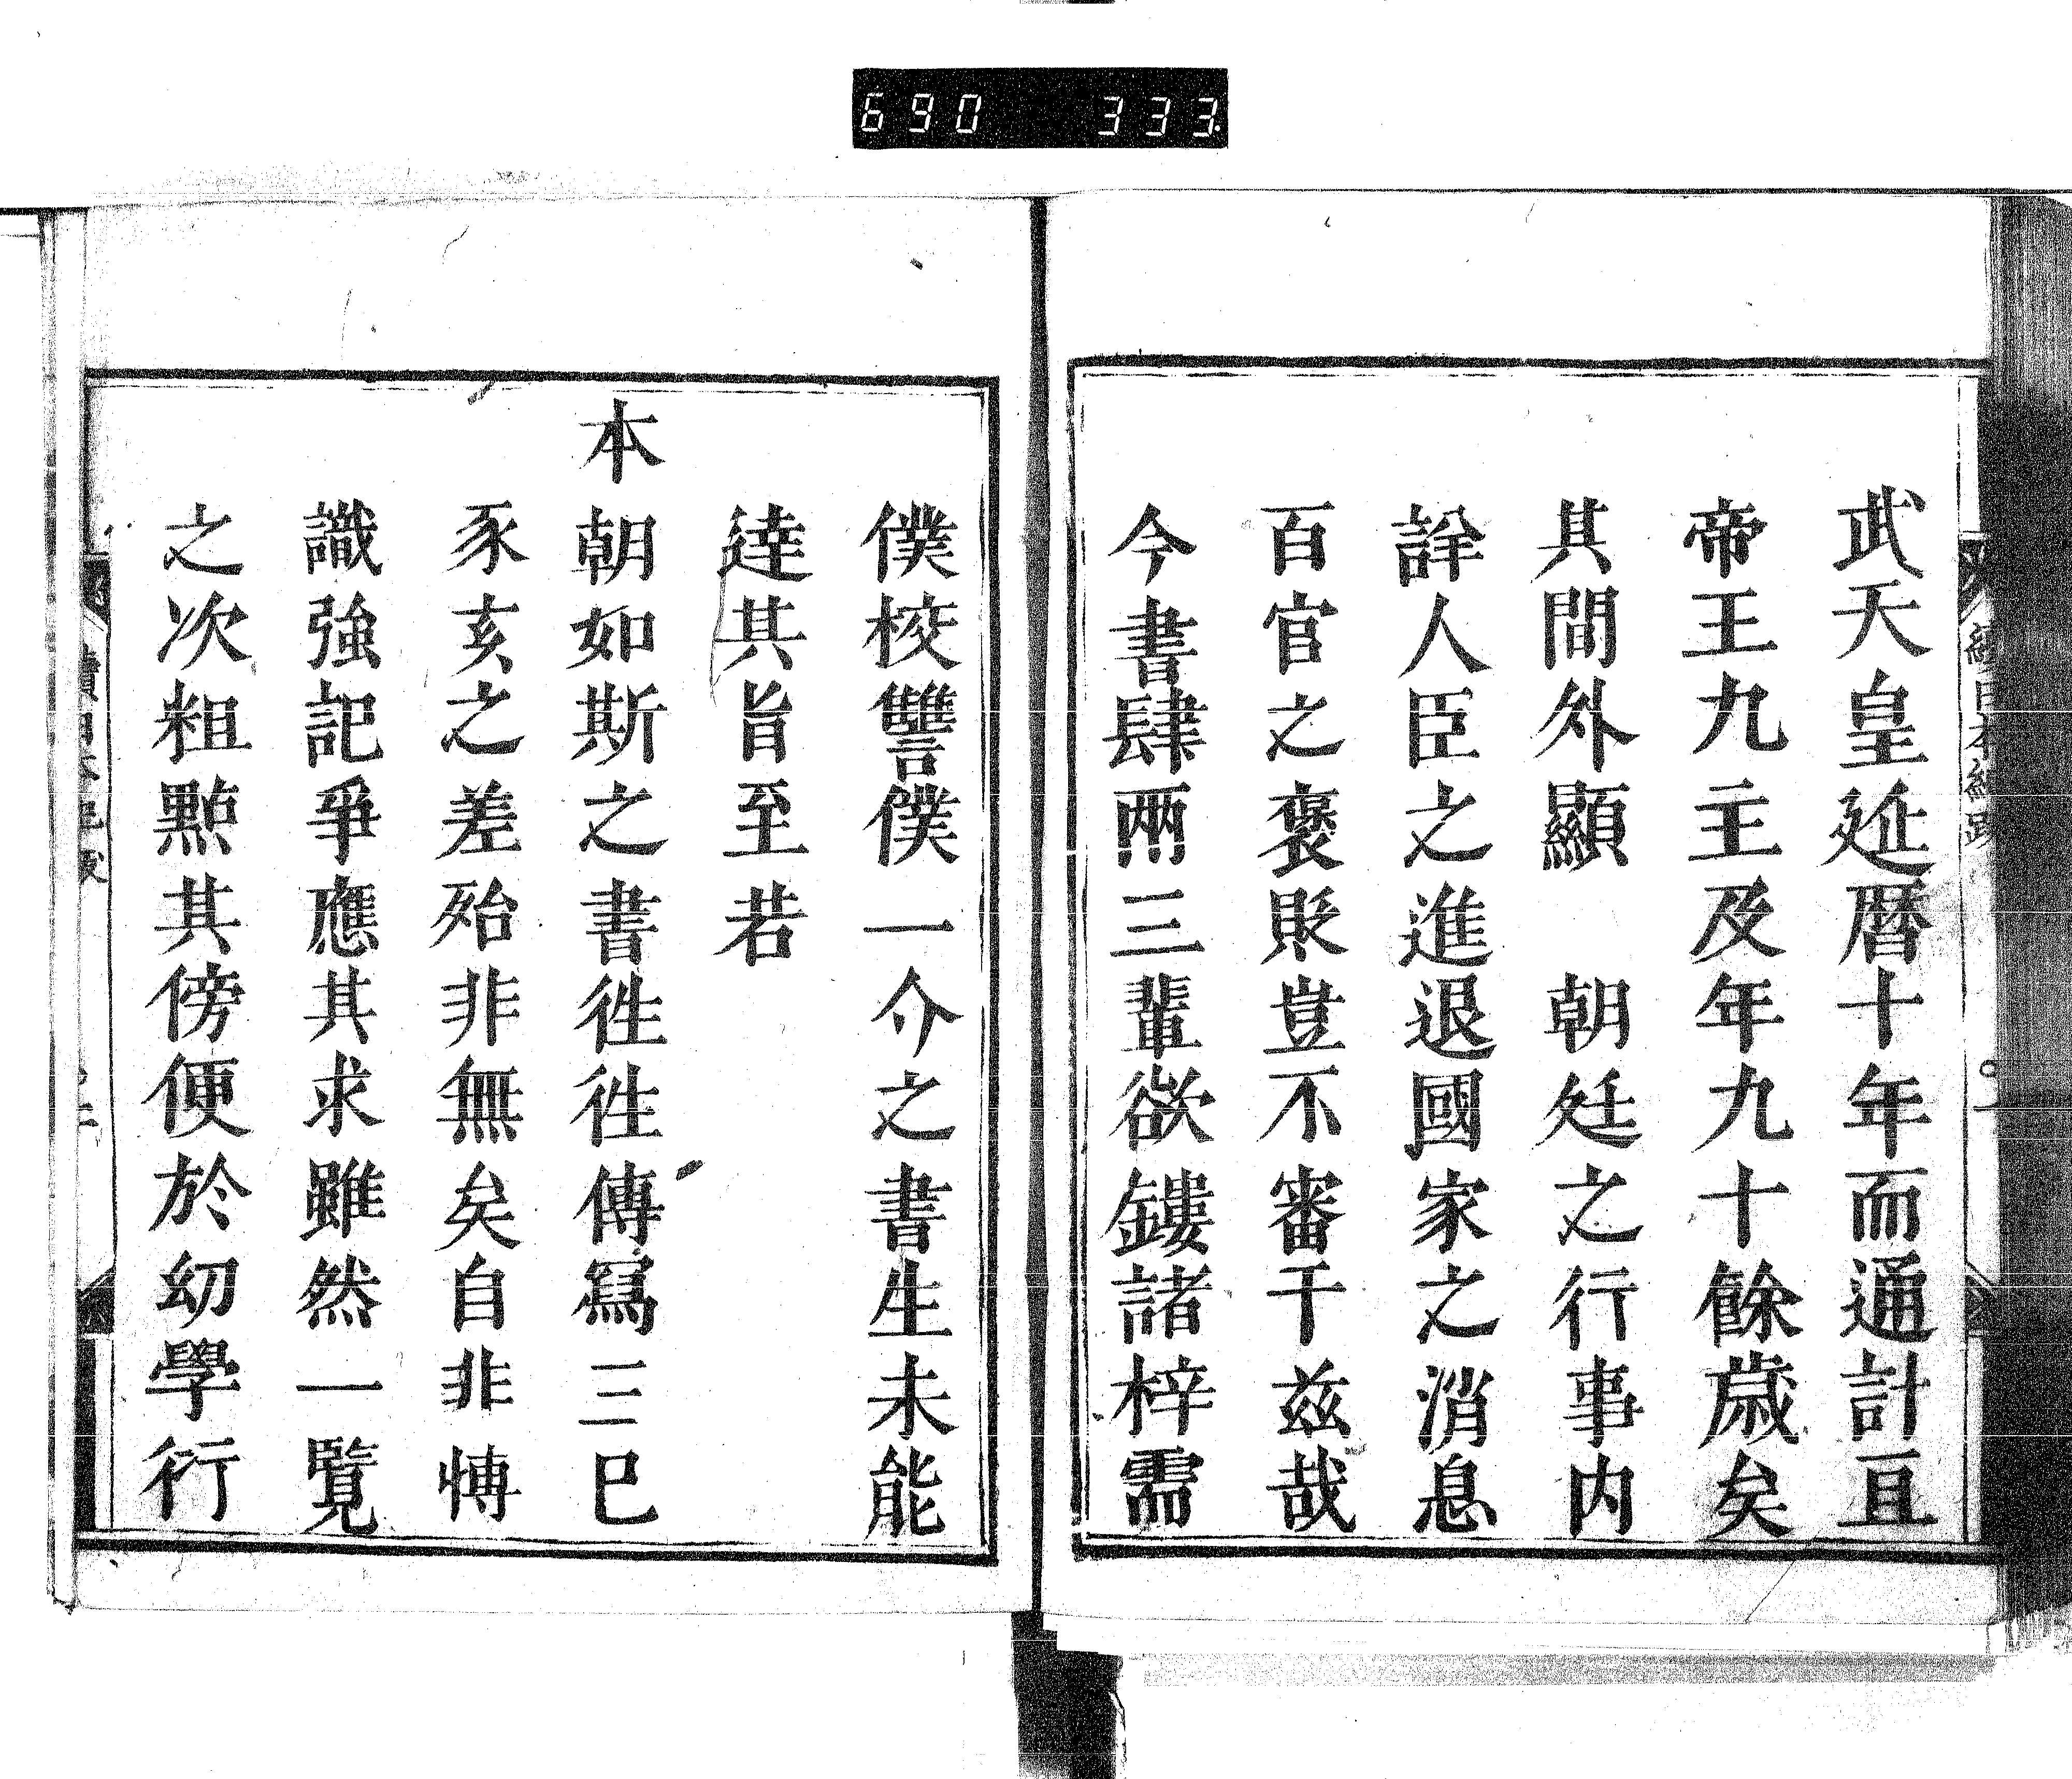 690 333
武天皇延暦十年而通計亘
帝王九主及年九十餘歳矣
其間外顯　朝廷之行事内
詳人臣之進退國家之消息
百官之褒貶豈不審于茲哉
今書肆兩三輩欲鏤諸梓需
僕校讐僕一介之書生未能
達其旨至若
本朝如斯之書徃徃傳寫三巳
豕亥之差殆非無矣自非愽
識強記爭應其求雖然一覽
之次粗㸃其傍便於幼學行